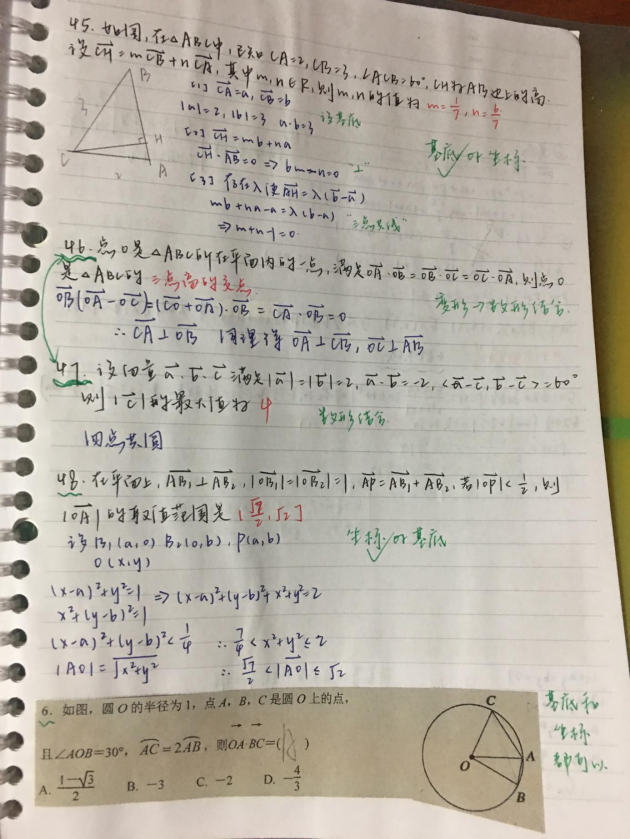 45. 如图,在△ABC中,已知CA=2,CB=3,∠ACB=60°,CH为AB边上的高.
设CH=mCB+nCA,其中m,n∈R,则m,n的值为 m=1/7, n=6/7
(1) CA=a, CB=b
|a|=2, |b|=3 a·b=3 设基底
(2) CH=mb+na
CH·AB=0 ⇒ 6m-n=0 "⊥"
基底 or 坐标
(3) 存在λ使AH=λ(b-a)
mb+na-a=λ(b-a) "三点共线"
⇒m+n-1=0
B
3
H
C
A
46. 点O是△ABC所在平面内的一点,满足OA·OB=OB·OC=OC·OA,则点O
是△ABC的 三点高的交点
OB(OA-OC)=(CO+OA)·OB=CA·OB=0
变形→数形结合.
∴CA⊥OB 同理得 OA⊥CB, OC⊥AB
47. 设向量a、b、c满足|a|=|b|=2, a·b=-2, <a-c, b-c>=60°
则|c|的最大值为 4
数形结合
四点共圆
48. 在平面上, AB₁⊥AB₂, |OB₁|=|OB₂|=1, AP=AB₁+AB₂, 若|OP|<1/2, 则
|OA|的取值范围是(√7/2, √2]
设B₁(a,0) B₂(0,b), P(a,b)
坐标 or 基底
O(x,y)
(x-a)²+y²=1 ⇒(x-a)²+(y-b)²+x²+y²=2
x²+(y-b)²=1
(x-a)²+(y-b)²<1/4 ∴7/4<x²+y²≤2
|AO|=√x²+y² ∴√7/2<|AO|≤√2
6. 如图,圆O的半径为1,点A,B,C是圆O上的点,
且∠AOB=30°,AC=2AB,则OA·BC=( )
A. (1-√3)/2 B. -3 C. -2 D. -4/3
C
O
A
B
基底和
坐标
都可以